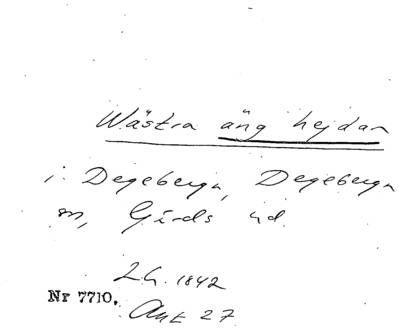 Wästra äng hejdan
i Degeberga, Degeberga
sn, Gärds hd.
L.h. 1842
Nr 7710.
Akt 27